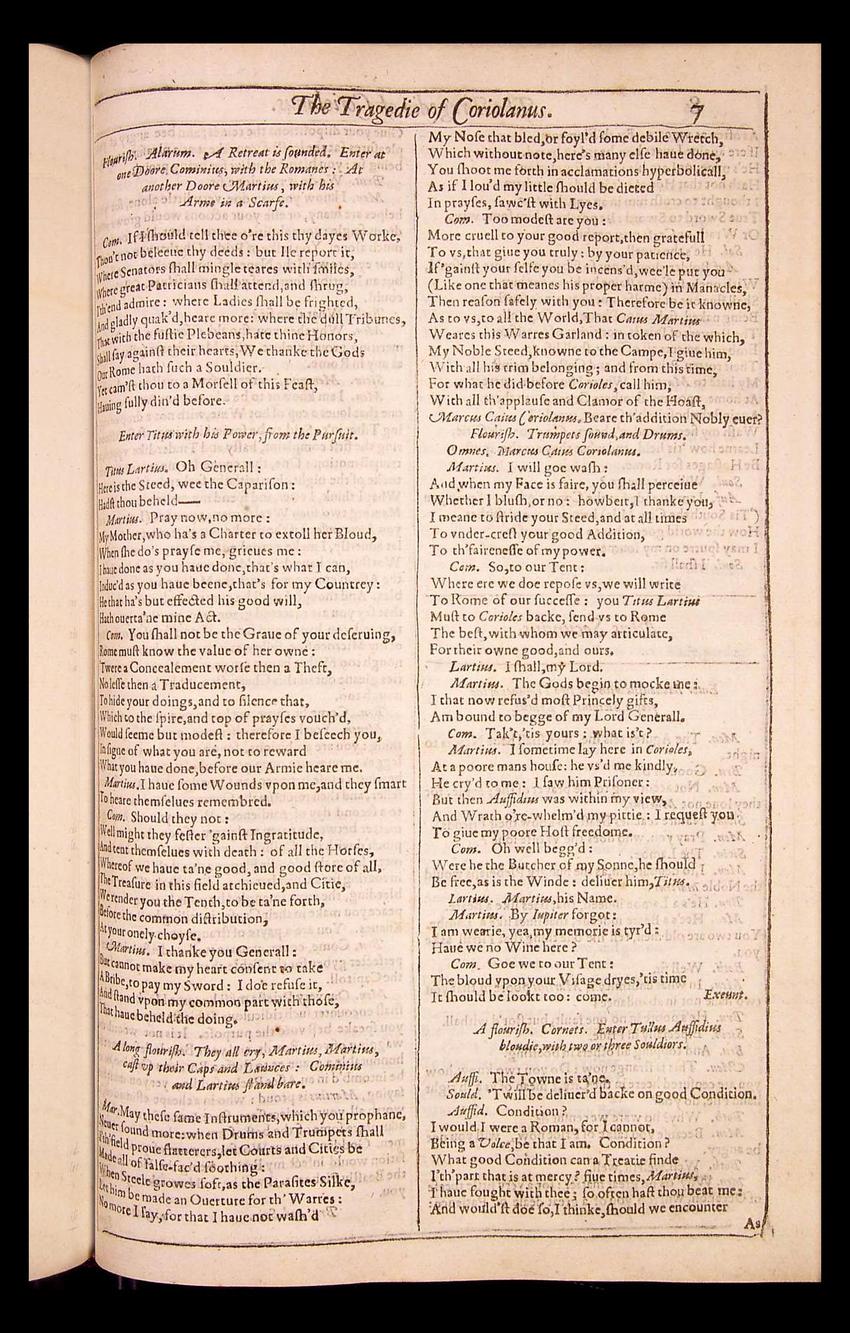 The Tragedie of Coriolanus. 7
Flourish. Alarum. A Retreat is sounded. Enter at
one Doore Cominius, with the Romanes: At
another Doore Martius, with his
Arme in a Scarfe.
Com. If I should tell thee o're this thy dayes Worke,
Thou't not beleeue thy deeds: but Ile report it,
Where Senators shall mingle teares with smiles,
Where great Patricians shall attend, and shrug,
I'th'end admire: where Ladies shall be frighted,
And gladly quak'd, heare more: where the dull Tribunes,
That with the fustie Plebeans, hate thine Honors,
Shall say against their hearts, We thanke the Gods
Our Rome hath such a Souldier.
Yet cam'st thou to a Morsell of this Feast,
Hauing fully din'd before.
Enter Titus with his Power, from the Pursuit.
Titus Lartius. Oh Generall:
Here is the Steed, wee the Caparison:
Hadst thou beheld——
Martius. Pray now, no more:
My Mother, who ha's a Charter to extoll her Bloud,
When she do's prayse me, grieues me:
I haue done as you haue done, that's what I can,
Induc'd as you haue beene, that's for my Countrey:
He that ha's but effected his good will,
Hath ouerta'ne mine Act.
Com. You shall not be the Graue of your deseruing,
Rome must know the value of her owne:
'Twere a Concealement worse then a Theft,
No lesse then a Traducement,
To hide your doings, and to silence that,
Which to the spire, and top of prayses vouch'd,
Would seeme but modest: therefore I beseech you,
In signe of what you are, not to reward
What you haue done, before our Armie heare me.
Martius. I haue some Wounds vpon me, and they smart
To heare themselues remembred.
Com. Should they not:
Well might they fester 'gainst Ingratitude,
And tent themselues with death: of all the Horses,
Whereof we haue ta'ne good, and good store of all,
The Treasure in this field atchieued, and Citie,
We render you the Tenth, to be ta'ne forth,
Before the common distribution,
At your onely choyse.
Martius. I thanke you Generall:
But cannot make my heart consent to take
A Bribe, to pay my Sword: I doe refuse it,
And stand vpon my common part with those,
That haue beheld the doing.
A long flourish. They all cry, Martius, Martius,
cast vp their Caps and Launces: Cominius
and Lartius stand bare.
Mar. May these same Instruments, which you prophane,
Neuer sound more: when Drums and Trumpets shall
I'th'field proue flatterers, let Courts and Cities be
Made all of false-fac'd soothing:
When Steele growes soft, as the Parasites Silke,
Let him be made an Ouerture for th' Warres:
No more I say, for that I haue not wash'd
My Nose that bled, or foyl'd some debile Wretch,
Which without note, here's many else haue done,
You shoot me forth in acclamations hyperbolicall,
As if I lou'd my little should be dieted
In prayses, sawc'st with Lyes.
Com. Too modest are you:
More cruell to your good report, then gratefull
To vs, that giue you truly: by your patience,
If 'gainst your selfe you be incens'd, wee'le put you
(Like one that meanes his proper harme) in Manacles,
Then reason safely with you: Therefore be it knowne,
As to vs, to all the World, That Caius Martius
Weares this Warres Garland: in token of the which,
My Noble Steed, knowne to the Campe, I giue him,
With all his trim belonging; and from this time,
For what he did before Corioles, call him,
With all th'applause and Clamor of the Hoast,
Marcus Caius Coriolanus. Beare th'addition Nobly euer?
Flourish. Trumpets sound, and Drums.
Omnes. Marcus Caius Coriolanus.
Martius. I will goe wash:
And when my Face is faire, you shall perceiue
Whether I blush, or no: howbeit, I thanke you,
I meane to stride your Steed, and at all times
To vnder-crest your good Addition,
To th'fairenesse of my power.
Com. So, to our Tent:
Where ere we doe repose vs, we will write
To Rome of our successe: you Titus Lartius
Must to Corioles backe, send vs to Rome
The best, with whom we may articulate,
For their owne good, and ours.
Lartius. I shall, my Lord.
Martius. The Gods begin to mocke me:
I that now refus'd most Princely gifts,
Am bound to begge of my Lord Generall.
Com. Tak't, 'tis yours: what is't?
Martius. I sometime lay here in Corioles,
At a poore mans house: he vs'd me kindly,
He cry'd to me: I saw him Prisoner:
But then Auffidius was within my view,
And Wrath o're-whelm'd my pittie: I request you
To giue my poore Host freedome.
Com. Oh well begg'd:
Were he the Butcher of my Sonne, he should
Be free, as is the Winde: deliuer him, Titus.
Lartius. Martius, his Name.
Martius. By Iupiter forgot:
I am wearie, yea, my memorie is tyr'd:
Haue we no Wine here?
Com. Goe we to our Tent:
The bloud vpon your Visage dryes, 'tis time
It should be lookt too: come. Exeunt.
A flourish. Cornets. Enter Tullus Auffidius
bloudie, with two or three Souldiors.
Auffi. The Towne is ta'ne.
Sould. 'Twill be deliuer'd backe on good Condition.
Auffid. Condition?
I would I were a Roman, for I cannot,
Being a Volce, be that I am. Condition?
What good Condition can a Treatie finde
I'th'part that is at mercy? fiue times, Martius,
I haue fought with thee; so often hast thou beat me:
And would'st doe so, I thinke, should we encounter
As